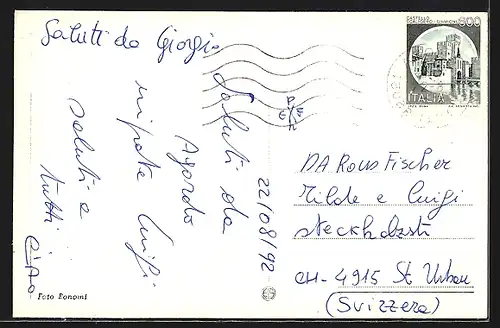 Saluti da Giorgio
Saluti da
Agordo
nipote Luigi
saluti a
tutti
CIAO
22/08/92
DA ROUS Fischer
Tilde e Luigi
Steckholzstr
CH-4915 St Urban
(Svizzera)
Foto Bonomi
600
ITALIA